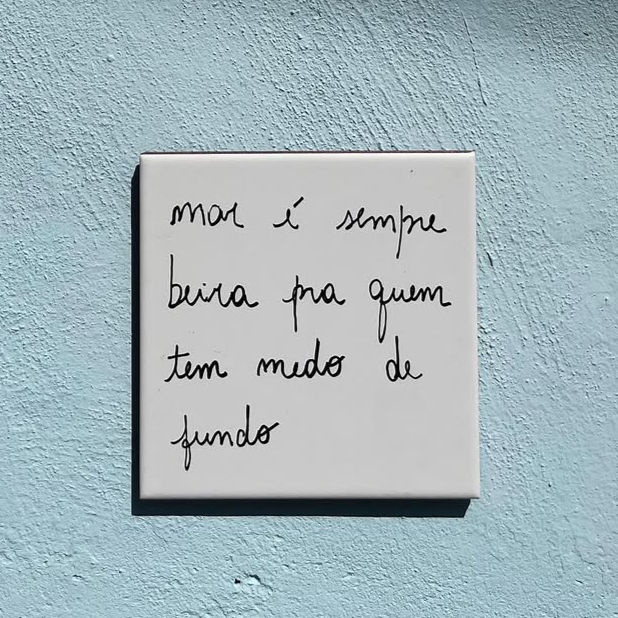 mar é sempre
beira pra quem
tem medo de
fundo